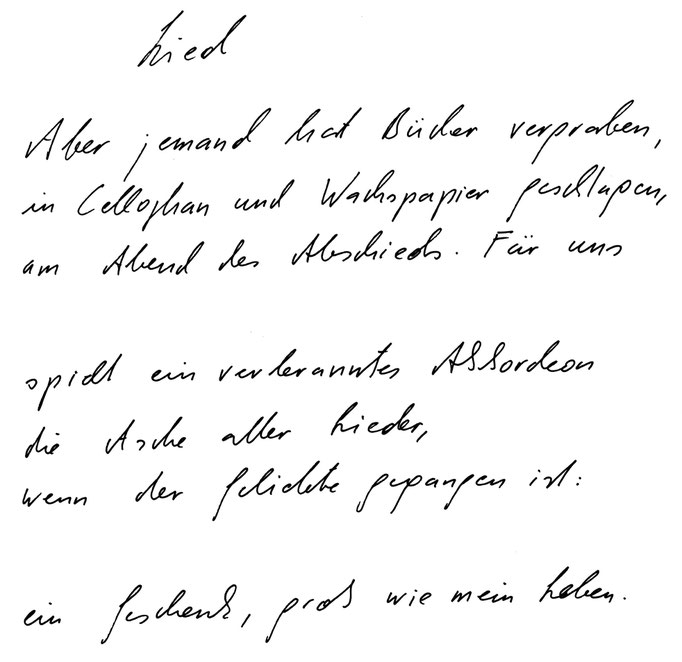 Lied
Aber jemand hat Bücher vergraben,
in Cellophan und Wachspapier geschlagen,
am Abend des Abschieds. Für uns
spielt ein verbranntes Akkordeon
die Asche aller Lieder,
wenn der Geliebte gegangen ist:
ein Geschenk, groß wie mein Leben.